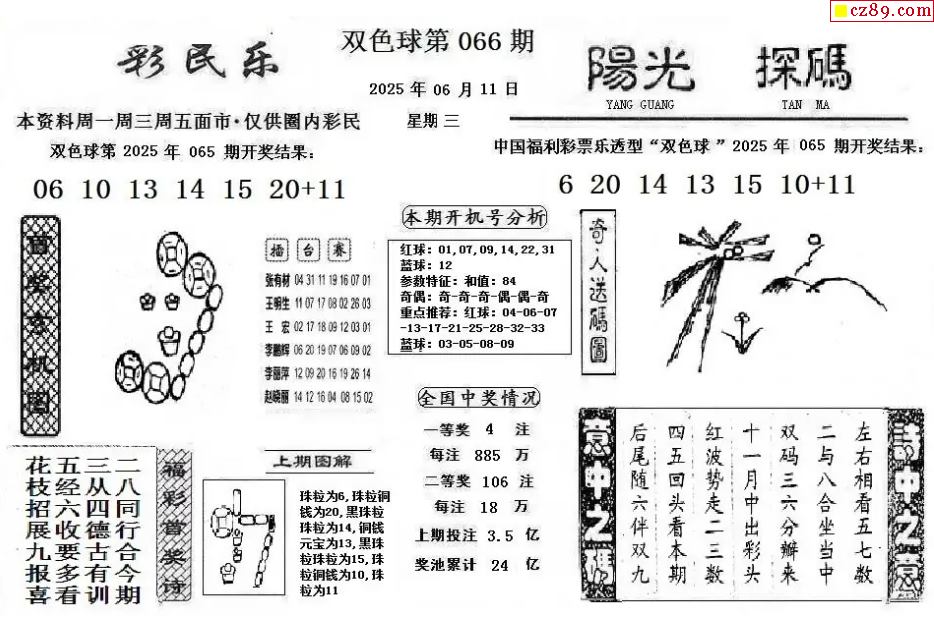 cz89.com
彩民乐
双色球第 066 期
2025 年 06 月 11 日
星期 三
本资料周一周三周五面市·仅供圈内彩民
双色球第 2025 年 065 期开奖结果:
06 10 13 14 15 20+11
陽光 探碼
YANG GUANG TAN MA
中国福利彩票乐透型“双色球 ”2025 年 065 期开奖结果:
6 20 14 13 15 10+11
首奖玄机图
擂台赛
张有材 04 31 11 19 16 07 01
王明生 11 07 17 08 02 26 03
王 宏 02 17 18 09 12 03 01
李鹏辉 06 20 19 07 06 09 02
李丽萍 12 09 20 16 19 26 14
赵晓丽 14 12 16 04 08 15 02
本期开机号分析
红球: 01,07,09,14,22,31
蓝球: 12
参数特征: 和值: 84
奇偶: 奇-奇-奇-偶-偶-奇
重点推荐: 红球: 04-06-07
-13-17-21-25-28-32-33
蓝球: 03-05-08-09
全国中奖情况
一等奖 4 注
每注 885 万
二等奖 106 注
每注 18 万
上期投注 3.5 亿
奖池累计 24 亿
奇人送碼圖
二八同行合今期
三从四德古有训
五经六收要多看
花枝招展九报喜
福彩首奖诗
上期图解
珠粒为6, 珠粒铜
钱为20, 黑珠粒
珠粒为14, 铜钱
元宝为13, 黑珠
粒珠粒为15, 珠
粒铜钱为10, 珠
粒为11
左右相看五七数
二与八合坐当中
双码三六分解来
十一月中出彩头
红波势走二三数
四五回头看本期
后尾随六伴双九
意中之
中之意